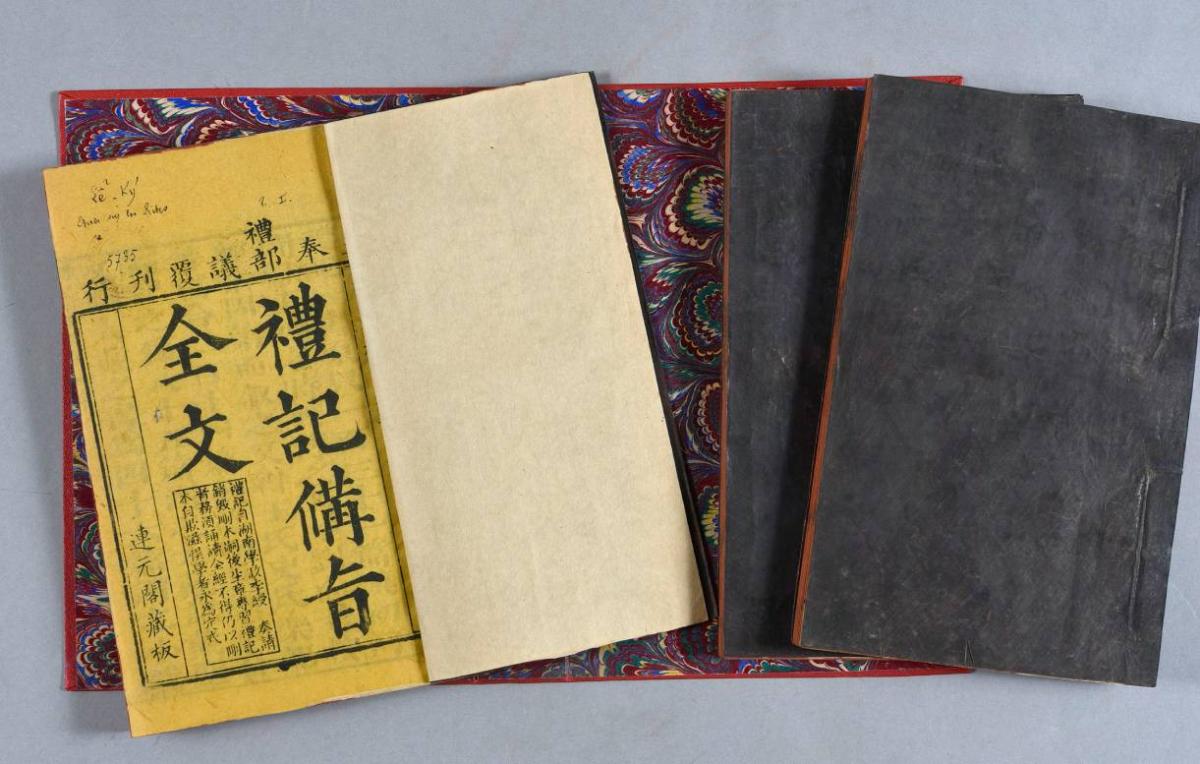 Lê-Ký
奉禮部議覆刊行
禮記備旨
全文
禮記自湖南學政李綬 奏請
銷毀刪本嗣後生童專習禮記
者務須誦讀全經不得仍以刪
本自欺滋悞學者永為定式
連元閣藏板